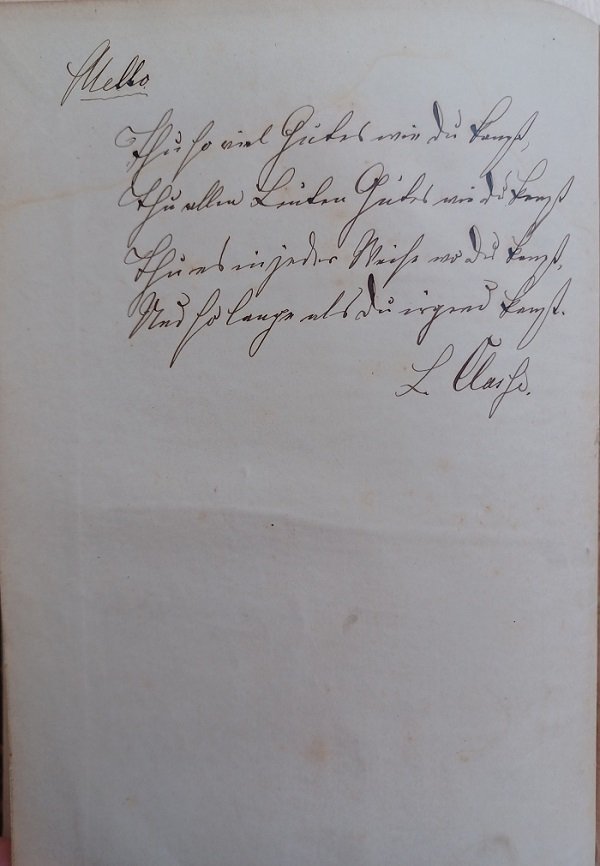 Motto
Thu so viel Gutes wie du kanst,
Thu allen Leuten Gutes wie du kanst
Thu es in jeder Weise wo du kanst,
Und so lange als du irgend kanst.
L. Classe.